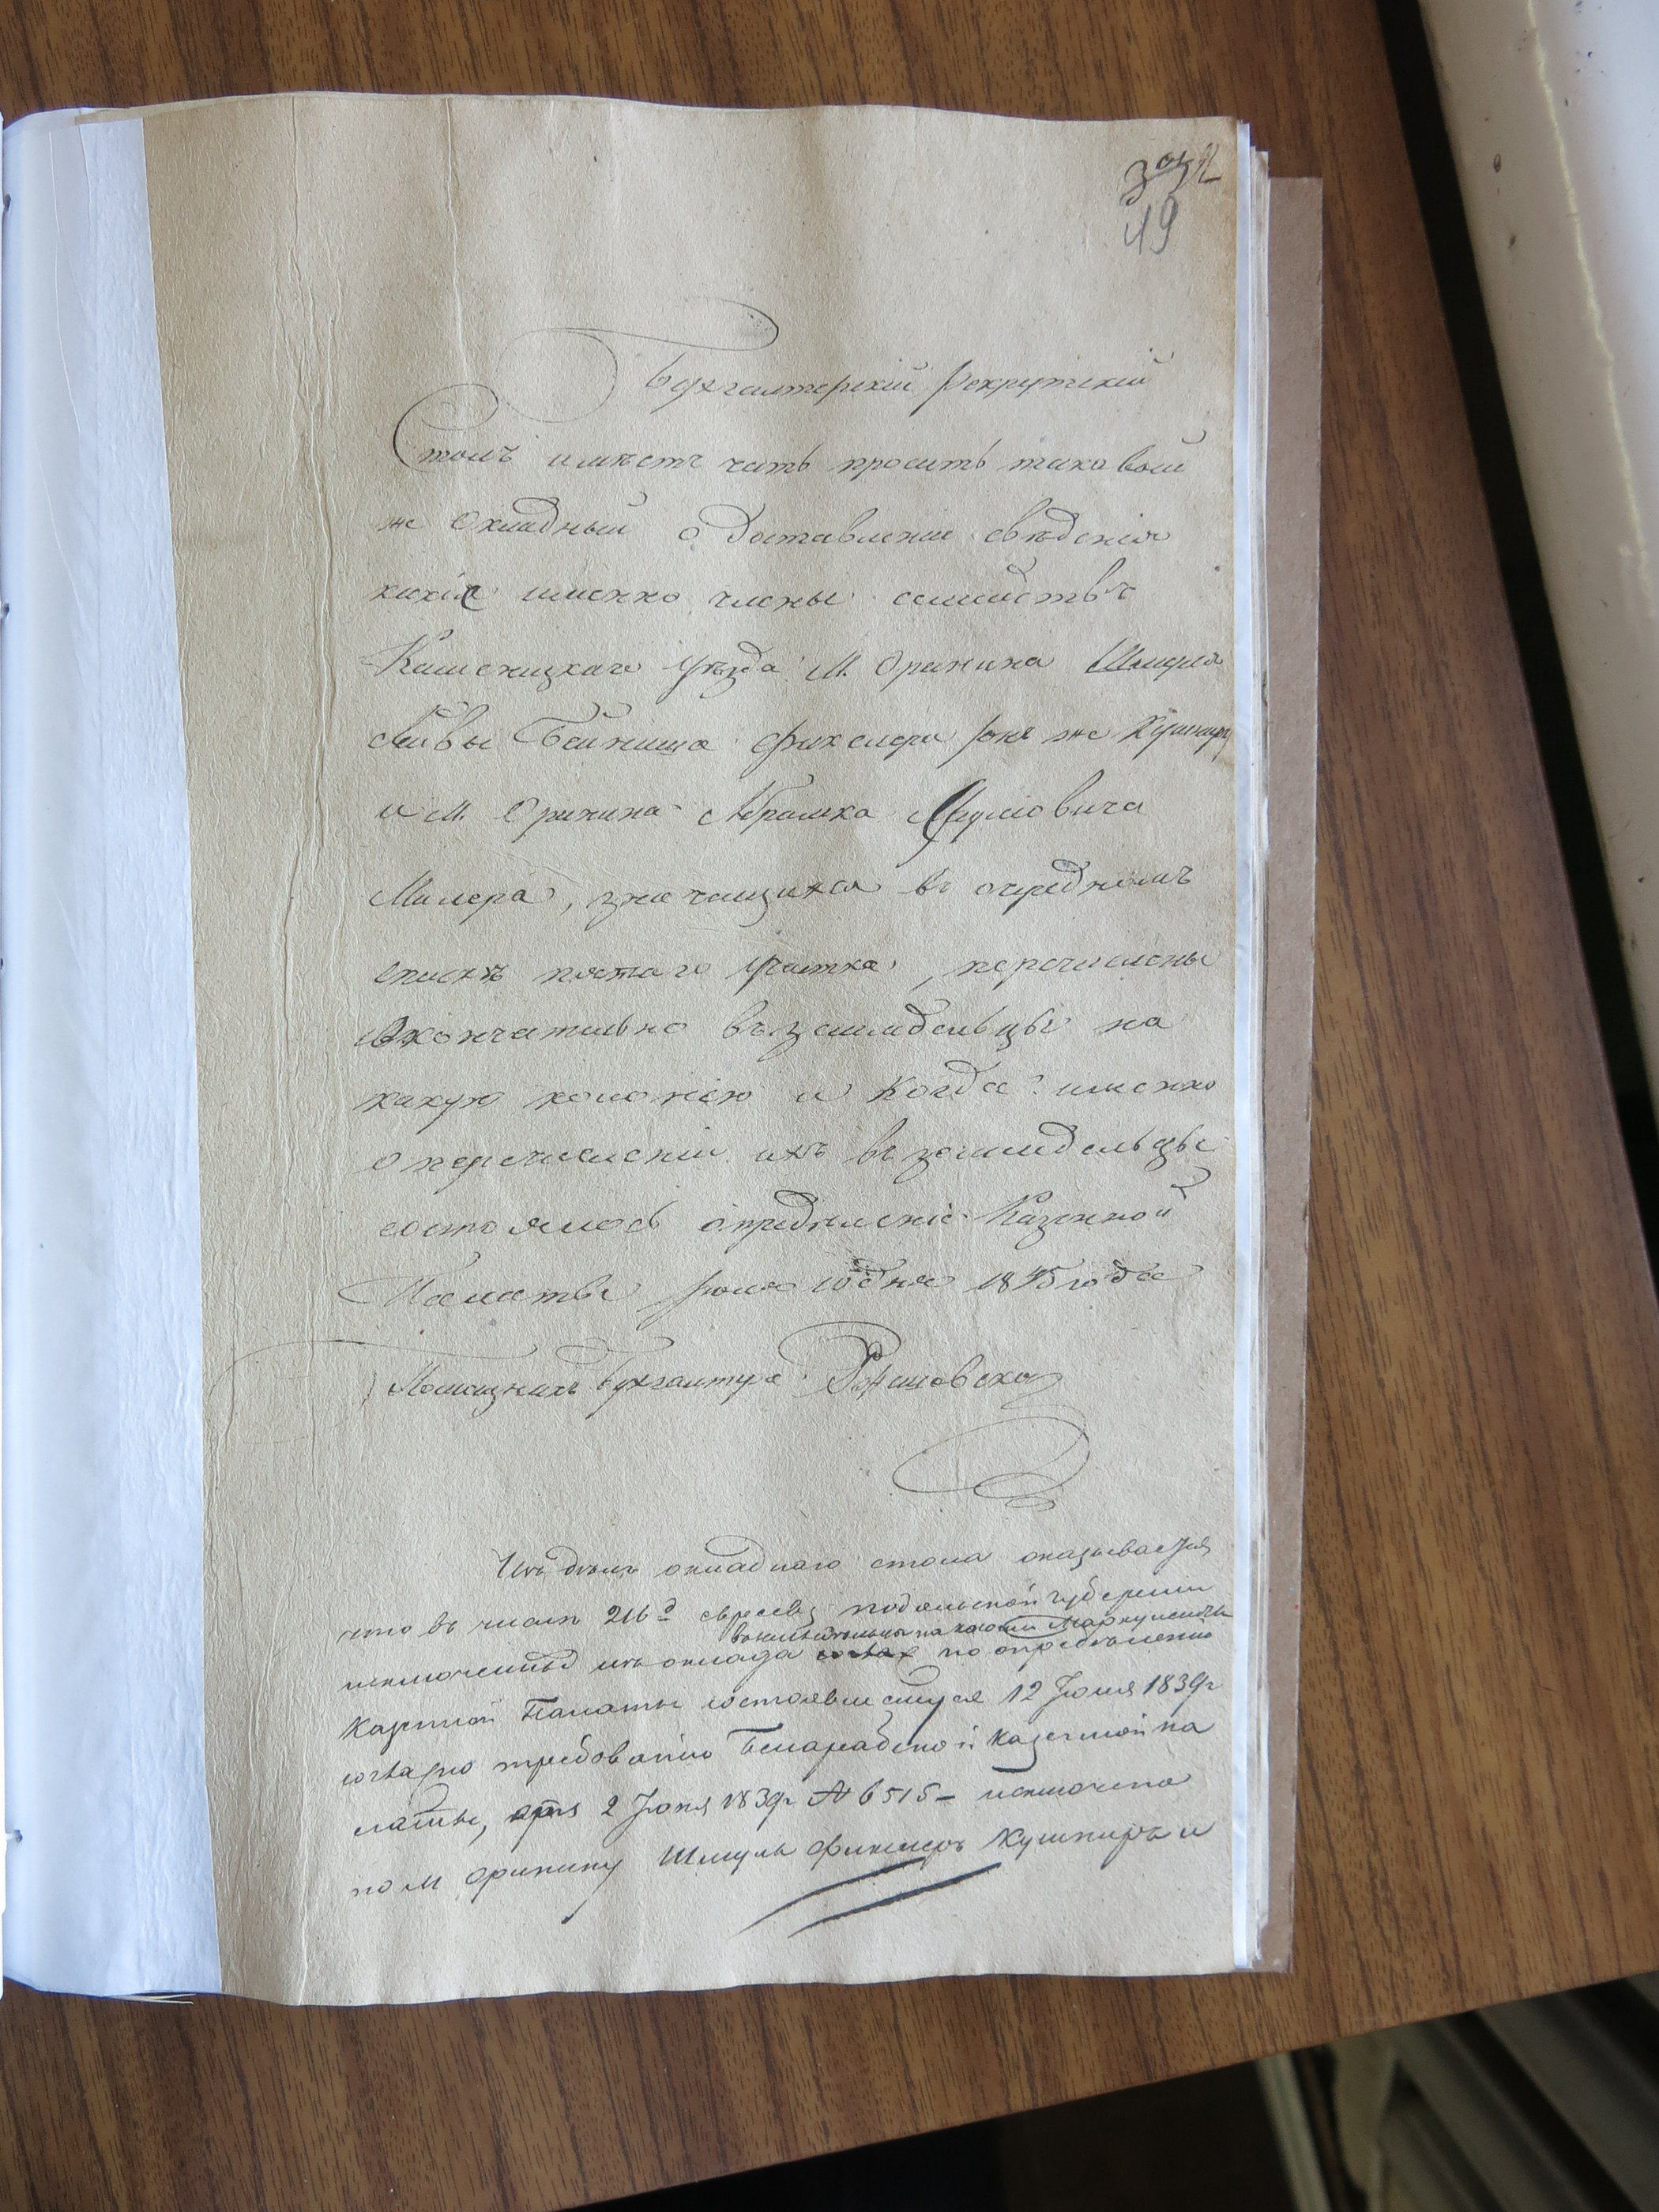 49
Бухгалтерскій Рекрутскій
Столъ имѣетъ честь просить таковой
же Окладный о доставленіи свѣденія
какія именно члены семействъ
Каменецкаго уѣзда М. Оринина Шмуля
Лейвы Бейниша Фикслера онъ же Кушниръ
и М. Оринина Абрамка
Милера, значащихся въ очередномъ
спискѣ пятаго участка, перечислены
окончательно въ земледельцы на
какую колонію и когда именно
о перечисленіи ихъ въ земледельцы
состоялось опредѣленіе Казенной
Палаты Іюля 10 дня 1845 года
Помощникъ Бухгалтера
Изъ дѣлъ окладнаго стола оказывается
что въ числѣ 216 евреевъ подольской губерніи
въ земледельцы на колонію Маркулешты
исключенныхъ изъ оклада по опредѣленію
Казенной Палаты состоявшемуся 12 Іюля 1839г
согласно требованію Бессарабской казенной па
латы, отъ 2 Іюня 1839г № 6515 – исключена
по м Оринину Шмуль Фикслеръ Кушниръ и